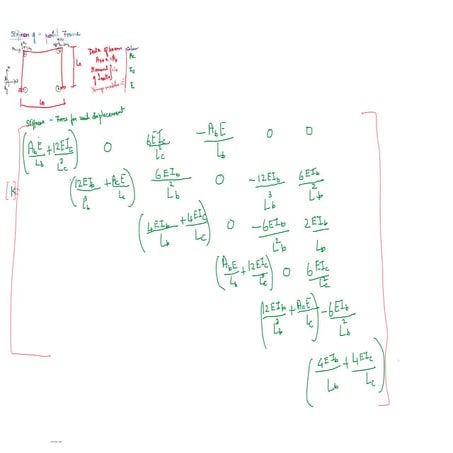 Stiffness of a portal Frame
Area
Ac
Moment of
E
Stiffness - Force for unit displacement
(AbE/Lb + 12EIc/Lc³) 0 6EIc/Lc² -AbE/Lb 0 0
[K] (12EIb/Lb³ + AcE/Lc) 6EIb/Lb² 0 -12EIb/Lb³ 6EIb/Lb²
(4EIb/Lb + 4EIc/Lc) 0 -6EIb/Lb² 2EIb/Lb
(AbE/Lb + 12EIc/Lc³) 0 6EIc/Lc²
(12EIb/Lb³ + AcE/Lc) -6EIb/Lb²
(4EIb/Lb + 4EIc/Lc)